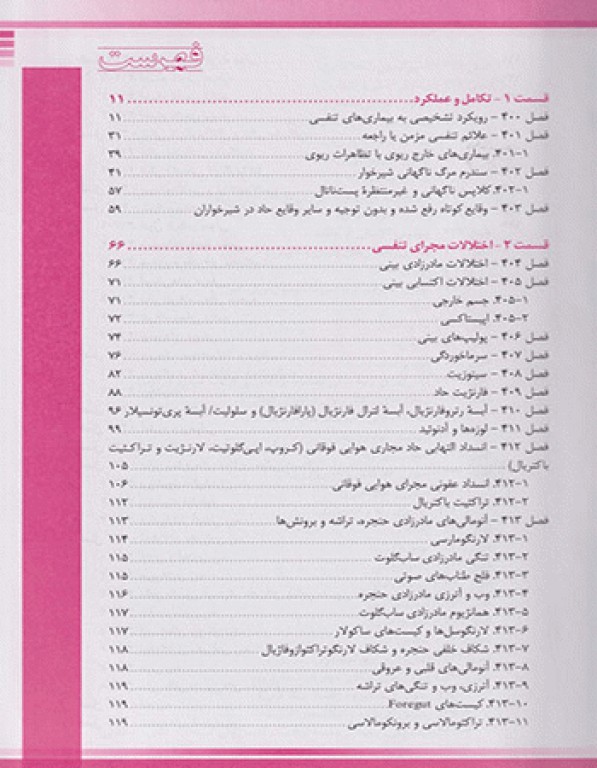 فهرست
قسمت ۱ – تکامل و عملکرد ۱۱
فصل ۴۰۰ – رویکرد تشخیصی به بیماری‌های تنفسی ۱۱
فصل ۴۰۱ – علائم تنفسی مزمن یا راجعه ۳۱
۴۰۱-۱. بیماری‌های خارج ریوی با تظاهرات ریوی ۳۹
فصل ۴۰۲ – سندرم مرگ ناگهانی شیرخوار ۴۱
۴۰۲-۱. کلاپس ناگهانی و غیرمنتظرهٔ پست‌ناتال ۵۷
فصل ۴۰۳ – وقایع کوتاه رفع شده و بدون توجیه و سایر وقایع حاد در شیرخواران ۵۹
قسمت ۲ – اختلالات مجرای تنفسی ۶۶
فصل ۴۰۴ – اختلالات مادرزادی بینی ۶۶
فصل ۴۰۵ – اختلالات اکتسابی بینی ۷۱
۴۰۵-۱. جسم خارجی ۷۱
۴۰۵-۲. اپیستاکسی ۷۲
فصل ۴۰۶ – پولیپ‌های بینی ۷۴
فصل ۴۰۷ – سرماخوردگی ۷۶
فصل ۴۰۸ – سینوزیت ۸۲
فصل ۴۰۹ – فارنژیت حاد ۸۸
فصل ۴۱۰ – آبسهٔ رتروفارنژیال، آبسهٔ لترال فارنژیال (پارافارنژیال) و سلولیت/ آبسهٔ پری‌تونسیلار ۹۶
فصل ۴۱۱ – لوزه‌ها و آدنوئید ۹۹
فصل ۴۱۲ – انسداد التهابی حاد مجاری هوایی فوقانی (کروپ، اپی‌گلوتیت، لارنژیت و تراکئیت
باکتریال) ۱۰۵
۴۱۲-۱. انسداد عفونی مجرای هوایی فوقانی ۱۰۶
۴۱۲-۲. تراکئیت باکتریال ۱۱۲
فصل ۴۱۳ – آنومالی‌های مادرزادی حنجره، تراشه و برونش‌ها ۱۱۳
۴۱۳-۱. لارنگومالاسی ۱۱۴
۴۱۳-۲. تنگی مادرزادی ساب‌گلوت ۱۱۵
۴۱۳-۳. فلج طناب‌های صوتی ۱۱۵
۴۱۳-۴. وب و آترزی مادرزادی حنجره ۱۱۶
۴۱۳-۵. همانژیوم مادرزادی ساب‌گلوت ۱۱۷
۴۱۳-۶. لارنگوسل‌ها و کیست‌های ساکولار ۱۱۷
۴۱۳-۷. شکاف خلفی حنجره و شکاف لارنگوتراکئوازوفاژیال ۱۱۸
۴۱۳-۸. آنومالی‌های قلبی و عروقی ۱۱۸
۴۱۳-۹. آترزی، وب و تنگی‌های تراشه ۱۱۹
۴۱۳-۱۰. کیست‌های Foregut ۱۱۹
۴۱۳-۱۱. تراکئومالاسی و برونکومالاسی ۱۱۹